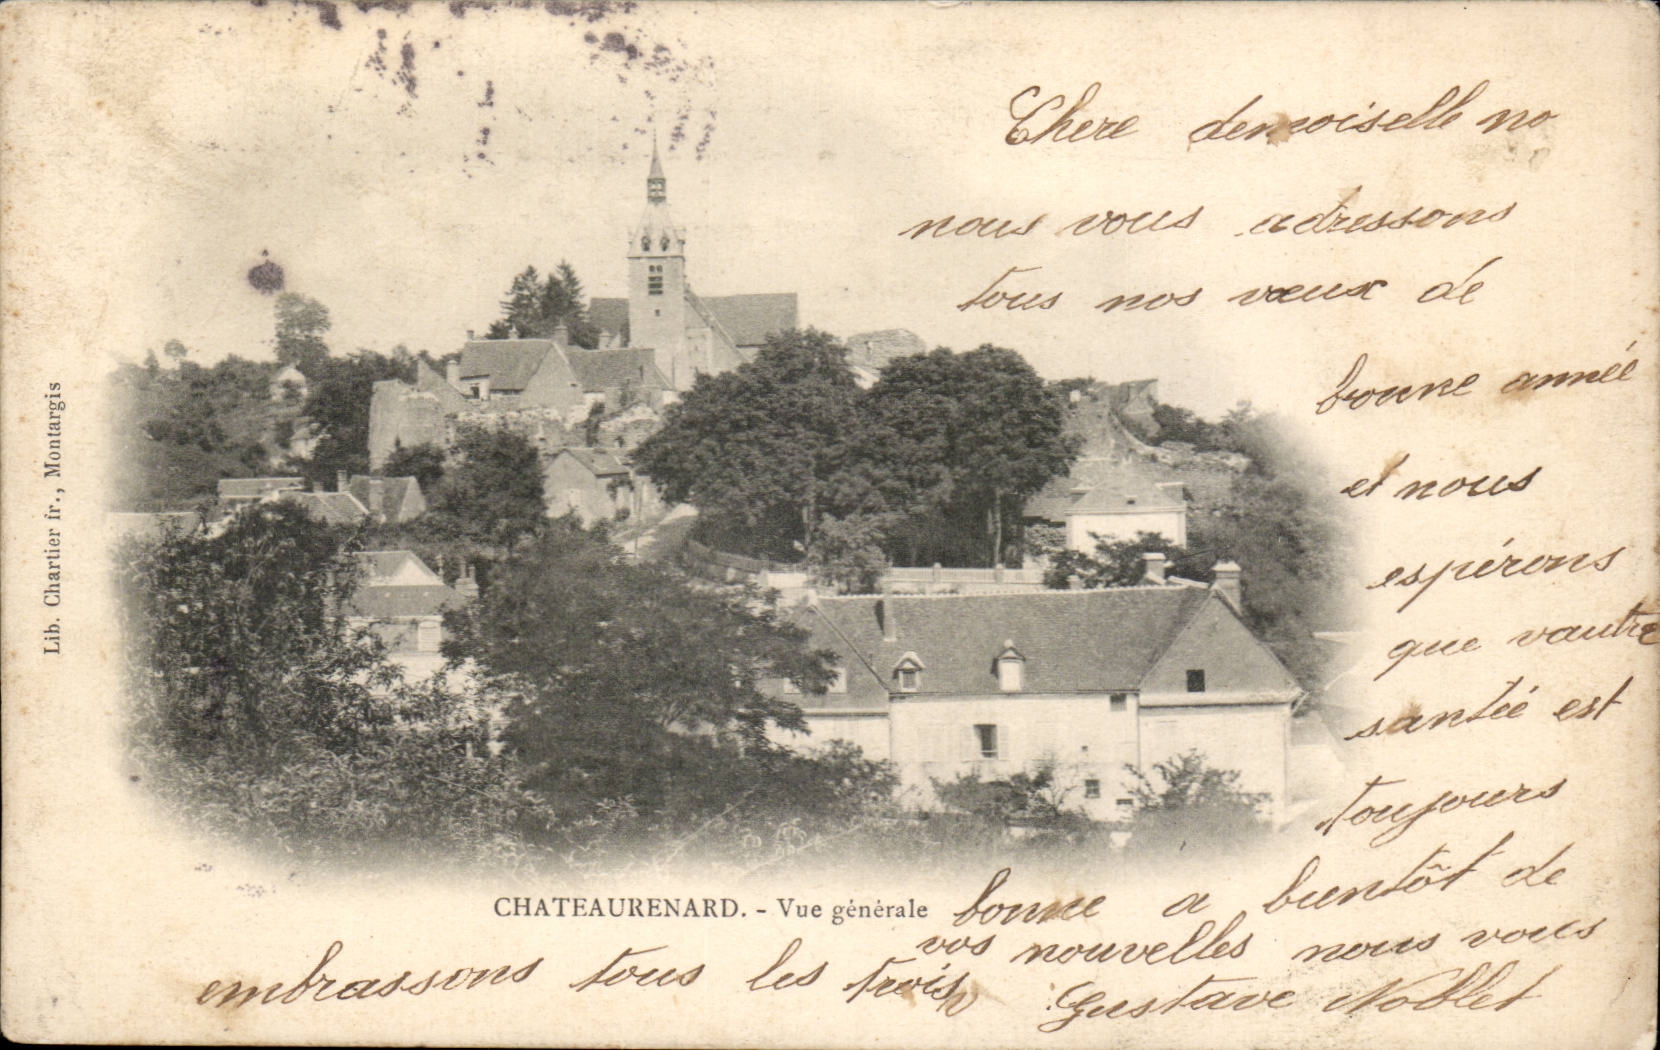 Chere demoiselle no
nous vous adressons
tous nos vœux de
bonne année
et nous
espérons
que vautre
santée est
toujours
bonne a bientôt de
vos nouvelles nous vous
embrassons tous les trois
Gustave Noblet
CHATEAURENARD. - Vue générale
Lib. Chartier fr., Montargis